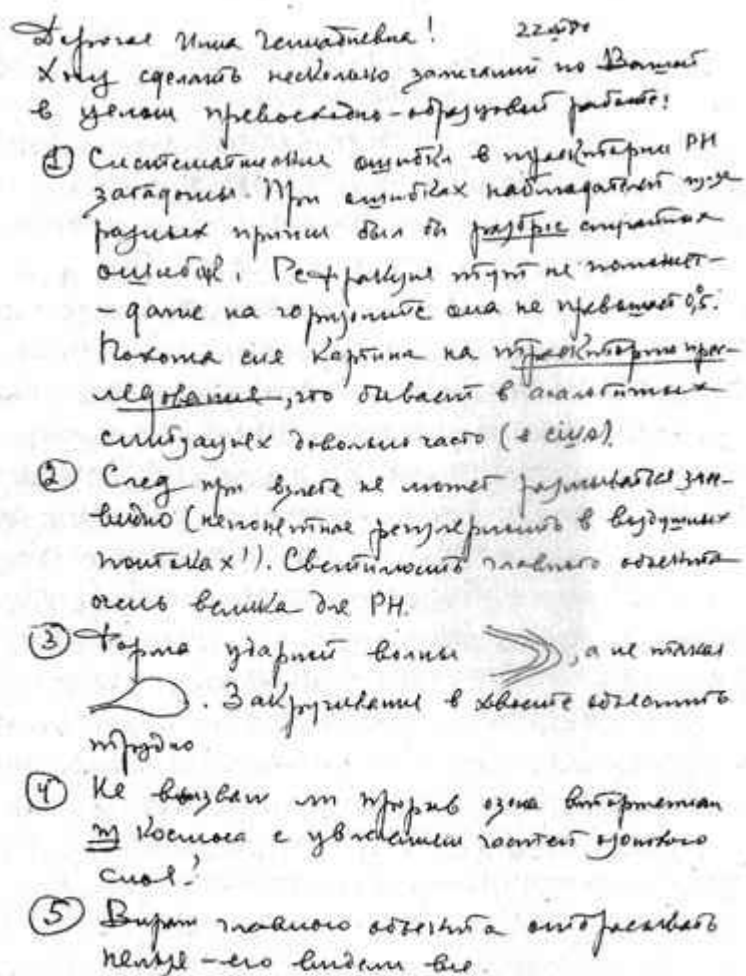 Дорогая Инна Геннадиевна!
Хочу сделать несколько замечаний по Вашей
в целом превосходно-образцовой работе:
① Систематические ошибки в траектории РН
загадочны. При ошибках наблюдателей
разных причин был бы разброс
ошибок! Рефракция тут не поможет-
- даже на горизонте она не превышает 0,5°.
Похожа сия картина на траекторию прес-
ледования, что бывает в аналогичных
ситуациях довольно часто (в США).
② След при взлете не может размываться
(непонятная регулярность в воздушных
потоках!). Светимость главного объекта
очень велика для РН.
③ Форма ударной волны , а не такая
. Закручивание в хвосте объяснить
трудно
④ Не вызван ли прорыв озона вторжением
из Космоса с увлечением частей озонового
слоя?
⑤ Вираж главного объекта отбрасывать
нельзя - его видели все.